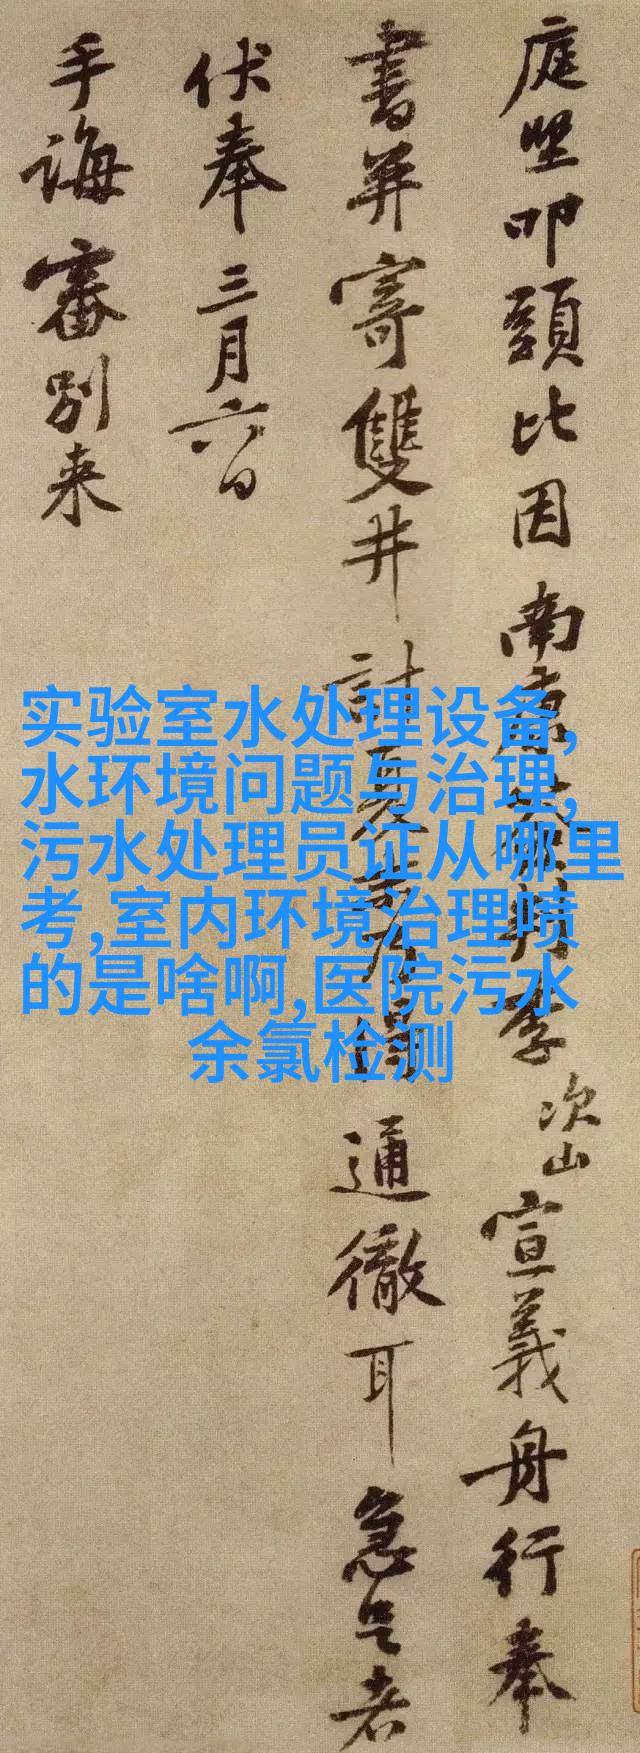 庭堅叩頭比因南康判李次山宣義舟行奉
書并寄雙井計夏乃得通徹耳急足者
伏奉三月六日
手誨審別来
实验室水处理设备,
水环境问题与治理,
污水处理员证从哪里
考,室内环境治理喷
的是啥啊,医院污水
余氯检测